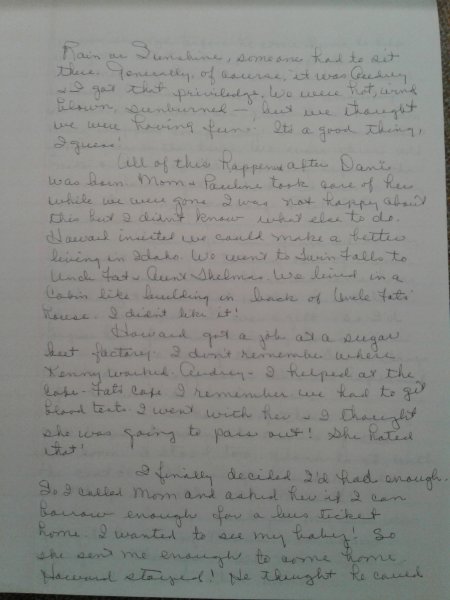 Rain or Sunshine, someone had to sit
there. Generally, of course, it was Audrey
& I got that priviledge. We were hot, wind
blown, sunburned — but we thought
we were having fun. Its a good thing,
I guess!
All of this happened after Dani
was born. Mom & Pauline took care of her
while we were gone. I was not happy about
this but I didn't know what else to do.
Howard insisted we could make a better
living in Idaho. We went to Twin Falls to
Uncle Fat & Aunt Thelmas. We lived in a
cabin like building in back of Uncle Fats
house. I didn't like it!
Howard got a job at a sugar
beet factory. I don't remember where
Kenny worked. Audrey & I helped at the
cafe - Fats cafe. I remember we had to get
blood tests. I went with her & I thought
she was going to pass out! She hated
that!
I finally decided I'd had enough.
So I called Mom and asked her if I can
borrow enough for a bus ticket
home. I wanted to see my baby! So
she sent me enough to come home.
Howard stayed! He thought he could